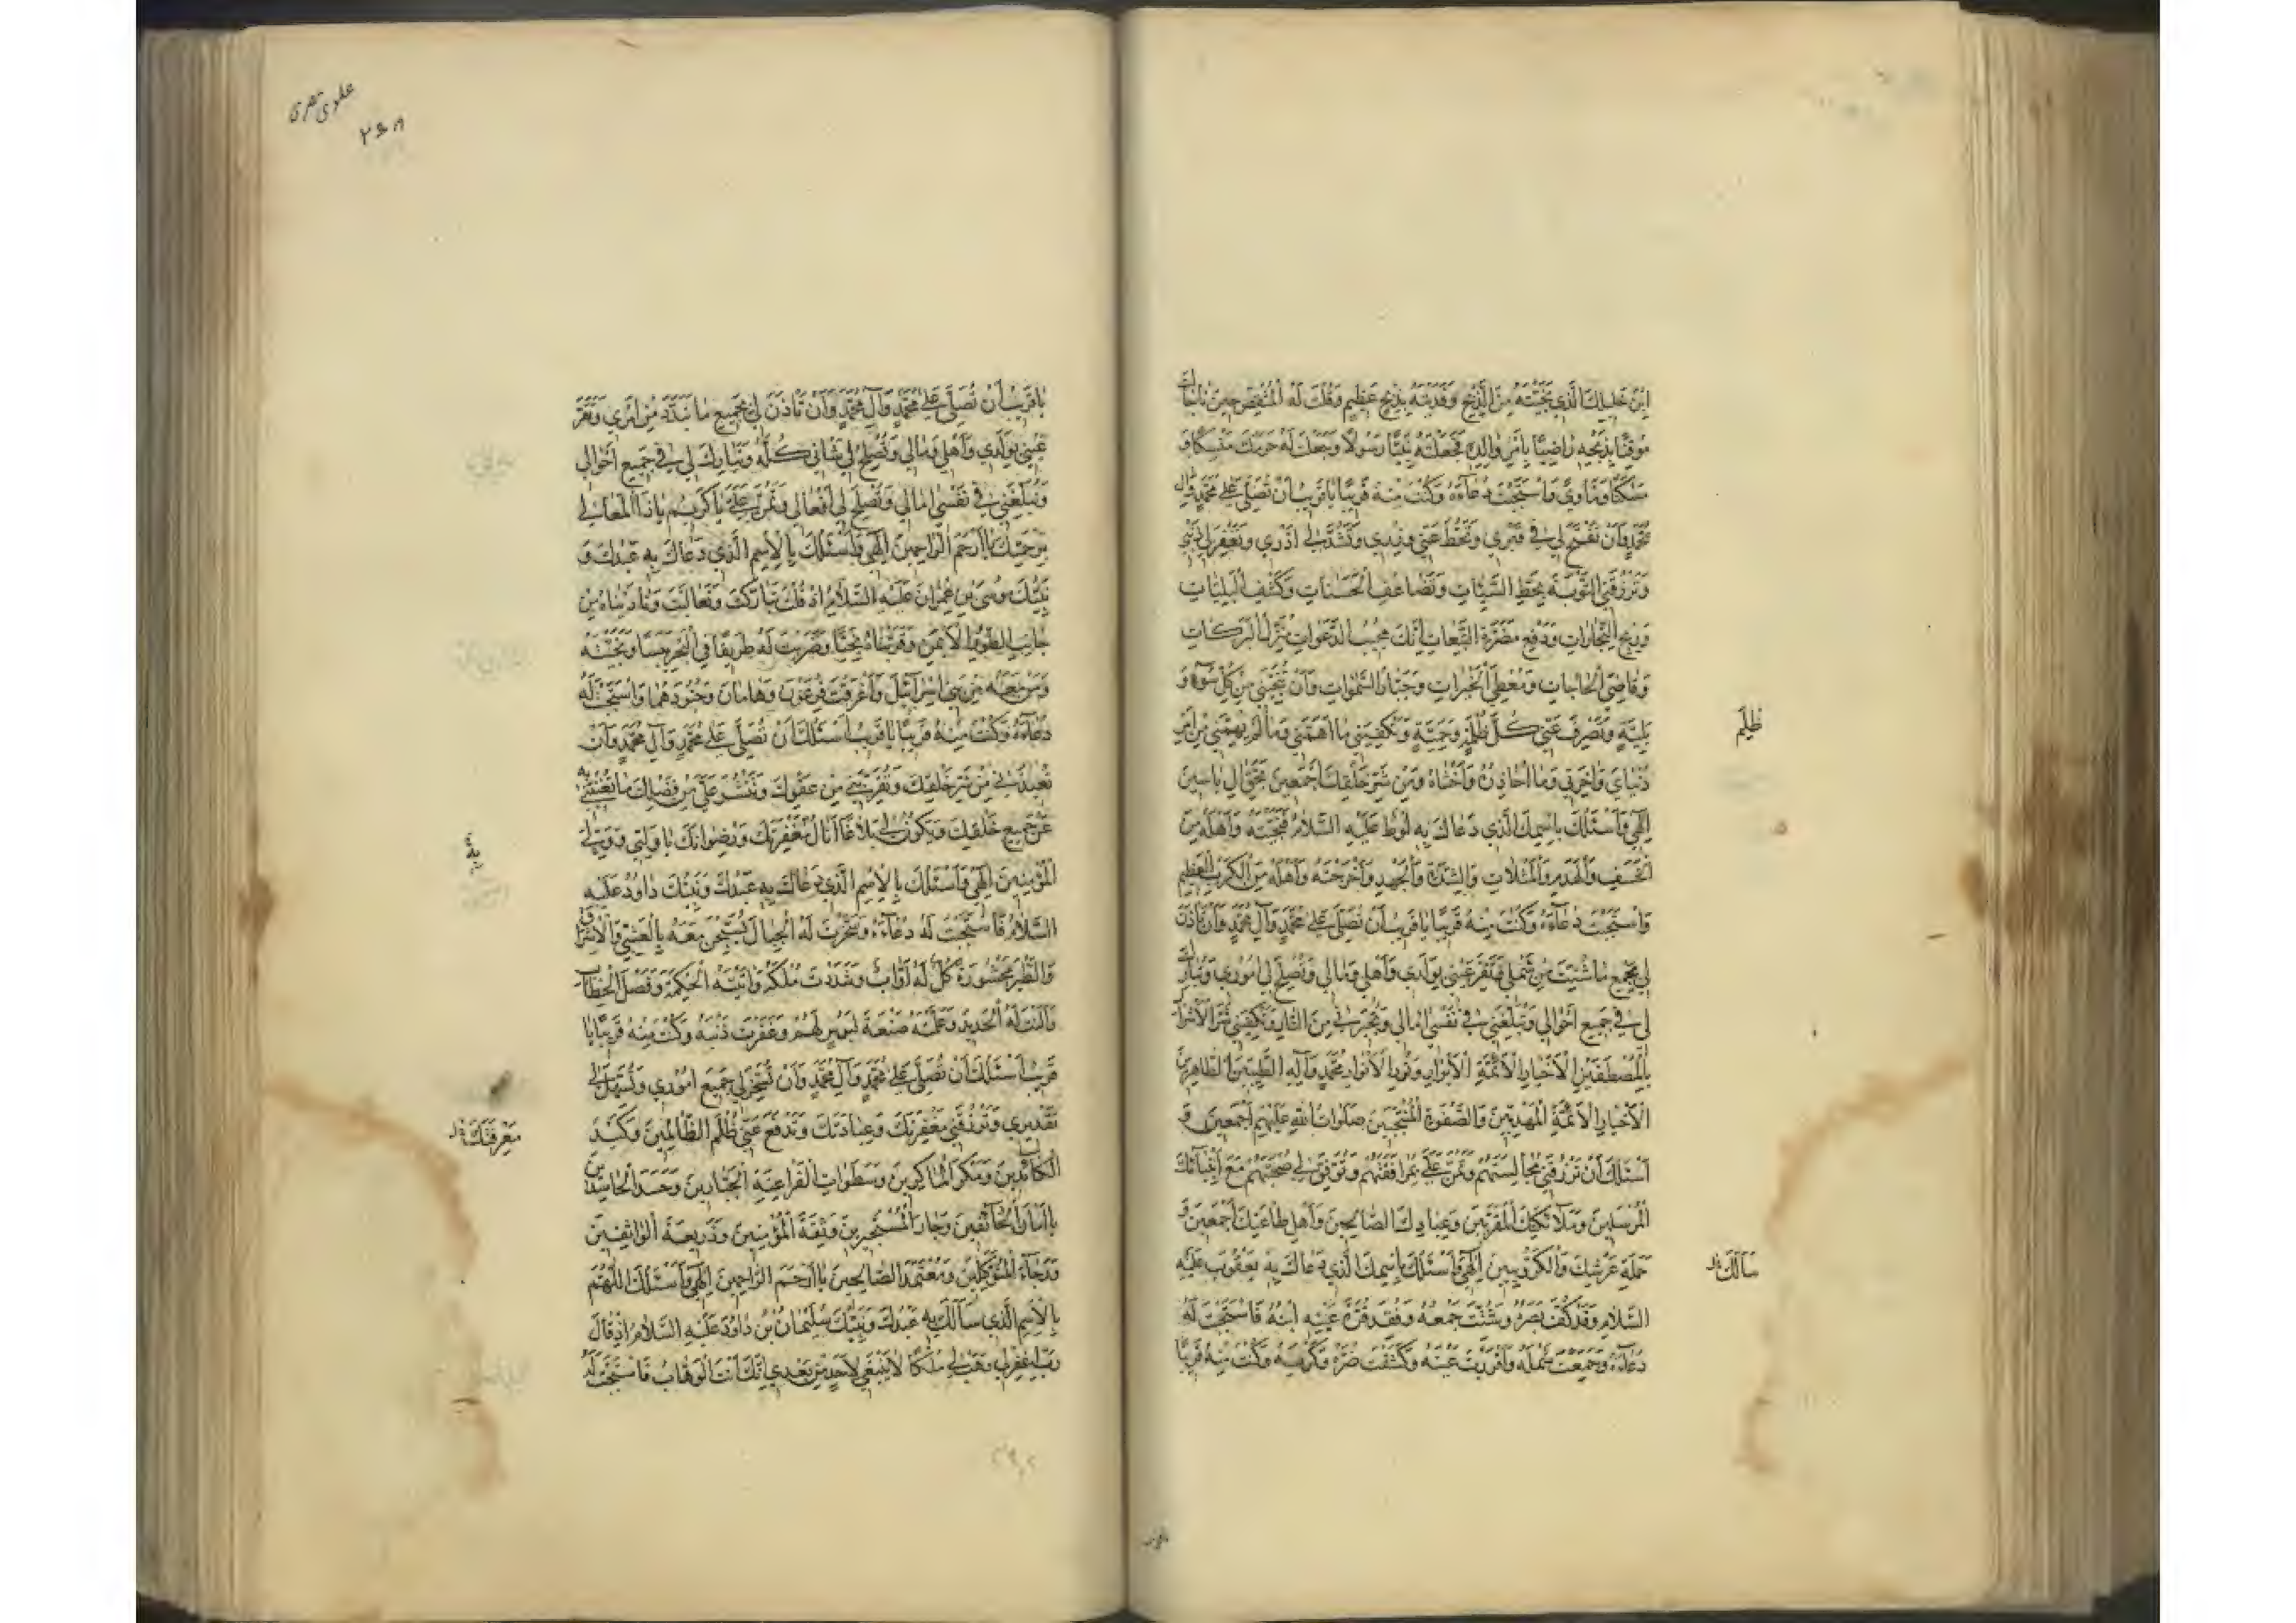 ابْنُ خَلِيلِكَ الَّذِي نَجَّيْتَهُ مِنَ الذَّبْحِ وَفَدَيْتَهُ بِذِبْحٍ عَظِيمٍ وَقَلَبْتَ لَهُ الْمِشْقَصَ حِينَ نَاجَاكَ
مُوقِنًا بِذَبْحِهِ رَاضِيًا بِأَمْرِ وَالِدِهِ فَجَعَلْتَهُ نَبِيًّا رَسُولًا وَجَعَلْتَ لَهُ حَرَمَكَ مَنْسَكًا وَ
مَسْكَنًا وَمَأْوًى وَاسْتَجَبْتَ دُعَاءَهُ وَكُنْتَ مِنْهُ قَرِيبًا يَا قَرِيبُ أَنْ تُصَلِّيَ عَلَى مُحَمَّدٍ وَآلِ
مُحَمَّدٍ وَأَنْ تَفْسَحَ لِي فِي قَبْرِي وَتَحُطَّ عَنِّي وِزْرِي وَتَشُدَّ لِي أَزْرِي وَتَغْفِرَ لِي ذَنْبِي
وَتَرْزُقَنِي التَّوْبَةَ بِحَطِّ السَّيِّئَاتِ وَتَضَاعُفِ الْحَسَنَاتِ وَكَشْفِ الْبَلِيَّاتِ
وَرِبْحِ التِّجَارَاتِ وَدَفْعِ مَضَرَّةِ السِّعَايَاتِ إِنَّكَ مُجِيبُ الدَّعَوَاتِ مُنْزِلُ الْبَرَكَاتِ
وَقَاضِي الْحَاجَاتِ وَمُعْطِي الْخَيْرَاتِ وَجَبَّارُ السَّمٰوَاتِ وَأَنْ تُنْجِيَنِي مِنْ كُلِّ سُوءٍ وَ
بَلِيَّةٍ وَتَصْرِفَ عَنِّي كُلَّ ظُلْمَةٍ وَخِيمَةٍ وَتَكْفِيَنِي مَا أَهَمَّنِي وَمَا لَمْ يُهِمَّنِي مِنْ أَمْرِ
ظُلَمٍ
دُنْيَايَ وَآخِرَتِي وَمَا أُحَاذِرُهُ وَأَخْشَاهُ وَمِنْ شَرِّ خَلْقِكَ أَجْمَعِينَ بِحَقِّ آلِ يَاسِينَ
إِلٰهِي وَأَسْئَلُكَ بِاسْمِكَ الَّذِي دَعَاكَ بِهِ لُوطٌ عَلَيْهِ السَّلَامُ فَنَجَّيْتَهُ وَأَهْلَهُ مِنَ
الْخَسْفِ وَالْهَدْمِ وَالْمَثُلَاتِ وَالشِّدَّةِ وَالْجَهْدِ وَأَخْرَجْتَهُ وَأَهْلَهُ مِنَ الْكَرْبِ الْعَظِيمِ
وَاسْتَجَبْتَ دُعَاءَهُ وَكُنْتَ مِنْهُ قَرِيبًا يَا قَرِيبُ أَنْ تُصَلِّيَ عَلَى مُحَمَّدٍ وَآلِ مُحَمَّدٍ وَأَنْ تَأْذَنَ
لِي بِجَمْعِ مَا شُتِّتَ مِنْ شَمْلِي وَتُقِرَّ عَيْنِي بِوَلَدِي وَأَهْلِي وَمَالِي وَتُصْلِحَ لِي أُمُورِي وَتُبَارِكَ
لِي فِي جَمِيعِ أَحْوَالِي وَتُبَلِّغَنِي فِي نَفْسِي آمَالِي وَتُجِيرَنِي مِنَ النَّارِ وَتَكْفِيَنِي شَرَّ الْأَشْرَارِ
بِالْمُصْطَفَيْنَ الْأَخْيَارِ الْأَئِمَّةِ الْأَبْرَارِ وَنُورِ الْأَنْوَارِ مُحَمَّدٍ وَآلِهِ الطَّيِّبِينَ الطَّاهِرِينَ
الْأَخْيَارِ الْأَئِمَّةِ الْمَهْدِيِّينَ وَالصَّفْوَةِ الْمُنْتَجَبِينَ صَلَوَاتُ اللهِ عَلَيْهِمْ أَجْمَعِينَ وَ
أَسْئَلُكَ أَنْ تَرْزُقَنِي مُجَالَسَتَهُمْ وَتَمُنَّ عَلَيَّ بِمُرَافَقَتِهِمْ وَتُوَفِّقَ لِي صُحْبَتَهُمْ مَعَ أَنْبِيَائِكَ
الْمُرْسَلِينَ وَمَلَائِكَتِكَ الْمُقَرَّبِينَ وَعِبَادِكَ الصَّالِحِينَ وَأَهْلِ طَاعَتِكَ أَجْمَعِينَ وَ
حَمَلَةِ عَرْشِكَ وَالْكَرُّوبِيِّينَ إِلٰهِي وَأَسْئَلُكَ بِاسْمِكَ الَّذِي دَعَاكَ بِهِ يَعْقُوبُ عَلَيْهِ
سَأَلَكَ
السَّلَامُ وَقَدْ كُفَّ بَصَرُهُ وَشُتِّتَ جَمْعُهُ وَفُقِدَ قُرَّةُ عَيْنِهِ ابْنُهُ فَاسْتَجَبْتَ لَهُ
دُعَاءَهُ وَجَمَعْتَ شَمْلَهُ وَأَقْرَرْتَ عَيْنَهُ وَكَشَفْتَ ضُرَّهُ وَكَرْبَهُ وَكُنْتَ مِنْهُ قَرِيبًا
علوی نصری
۲۵۸
يَا قَرِيبُ أَنْ تُصَلِّيَ عَلَى مُحَمَّدٍ وَآلِ مُحَمَّدٍ وَأَنْ تَأْذَنَ لِي بِجَمِيعِ مَا تَبَدَّدَ مِنْ أَمْرِي وَتُقِرَّ
عَيْنِي بِوَلَدِي وَأَهْلِي وَمَالِي وَتُصْلِحَ لِي شَأْنِي كُلَّهُ وَتُبَارِكَ لِي فِي جَمِيعِ أَحْوَالِي
وَتُبَلِّغَنِي فِي نَفْسِي آمَالِي وَتُصْلِحَ لِي أَفْعَالِي وَتَمُنَّ عَلَيَّ يَا كَرِيمُ يَا ذَا الْمَعَالِي
بِرَحْمَتِكَ يَا أَرْحَمَ الرَّاحِمِينَ إِلٰهِي وَأَسْئَلُكَ بِالْاِسْمِ الَّذِي دَعَاكَ بِهِ عَبْدُكَ وَ
نَبِيُّكَ مُوسَى بْنُ عِمْرَانَ عَلَيْهِ السَّلَامُ إِذْ قُلْتَ تَبَارَكْتَ وَتَعَالَيْتَ وَنَادَيْنَاهُ مِنْ
جَانِبِ الطُّورِ الْأَيْمَنِ وَقَرَّبْنَاهُ نَجِيًّا وَضَرَبْتَ لَهُ طَرِيقًا فِي الْبَحْرِ يَبَسًا وَنَجَّيْتَهُ
وَمَنْ مَعَهُ مِنْ بَنِي إِسْرَائِيلَ وَأَغْرَقْتَ فِرْعَوْنَ وَهَامَانَ وَجُنُودَهُمَا وَاسْتَجَبْتَ لَهُ
دُعَاءَهُ وَكُنْتَ مِنْهُ قَرِيبًا يَا قَرِيبُ أَسْئَلُكَ أَنْ تُصَلِّيَ عَلَى مُحَمَّدٍ وَآلِ مُحَمَّدٍ وَأَنْ
تُعِيذَنِي مِنْ شَرِّ خَلْقِكَ وَتُقَرِّبَنِي مِنْ عَفْوِكَ وَتَنْشُرَ عَلَيَّ مِنْ فَضْلِكَ مَا تُغْنِينِي بِهِ
عَنْ جَمِيعِ خَلْقِكَ وَيَكُونُ لِي بَلَاغًا أَنَالُ مَغْفِرَتَكَ وَرِضْوَانَكَ يَا وَلِيِّي وَوَلِيَّ
بِهِ
الْمُؤْمِنِينَ إِلٰهِي وَأَسْئَلُكَ بِالْاِسْمِ الَّذِي دَعَاكَ بِهِ عَبْدُكَ وَنَبِيُّكَ دَاوُدُ عَلَيْهِ
السَّلَامُ فَاسْتَجَبْتَ لَهُ دُعَاءَهُ وَسَخَّرْتَ لَهُ الْجِبَالَ يُسَبِّحْنَ مَعَهُ بِالْعَشِيِّ وَالْإِشْرَاقِ
وَالطَّيْرَ مَحْشُورَةً كُلٌّ لَهُ أَوَّابٌ وَشَدَدْتَ مُلْكَهُ وَآتَيْتَهُ الْحِكْمَةَ وَفَصْلَ الْخِطَابِ
وَأَلَنْتَ لَهُ الْحَدِيدَ وَعَلَّمْتَهُ صَنْعَةَ لَبُوسٍ لَهُمْ وَغَفَرْتَ ذَنْبَهُ وَكُنْتَ مِنْهُ قَرِيبًا يَا
قَرِيبُ أَسْئَلُكَ أَنْ تُصَلِّيَ عَلَى مُحَمَّدٍ وَآلِ مُحَمَّدٍ وَأَنْ تُسَخِّرَ لِي جَمِيعَ أُمُورِي وَتُسَهِّلَ لِي
تَقْدِيرِي وَتَرْزُقَنِي مَغْفِرَتَكَ وَعِبَادَتَكَ وَتَدْفَعَ عَنِّي ظُلْمَ الظَّالِمِينَ وَكَيْدَ
مَعْرِفَتَكَ
الْكَائِدِينَ وَمَكْرَ الْمَاكِرِينَ وَسَطَوَاتِ الْفَرَاعِنَةِ الْجَبَّارِينَ وَحَسَدَ الْحَاسِدِينَ
يَا أَمَانَ الْخَائِفِينَ وَجَارَ الْمُسْتَجِيرِينَ وَثِقَةَ الْمُؤْمِنِينَ وَذَرِيعَةَ الْوَاثِقِينَ
وَرَجَاءَ الْمُتَوَكِّلِينَ وَمُعْتَمَدَ الصَّالِحِينَ يَا أَرْحَمَ الرَّاحِمِينَ إِلٰهِي وَأَسْئَلُكَ اللّٰهُمَّ
بِالْاِسْمِ الَّذِي سَأَلَكَ بِهِ عَبْدُكَ وَنَبِيُّكَ سُلَيْمَانُ بْنُ دَاوُدَ عَلَيْهِ السَّلَامُ إِذْ قَالَ
رَبِّ اغْفِرْ لِي وَهَبْ لِي مُلْكًا لَا يَنْبَغِي لِأَحَدٍ مِنْ بَعْدِي إِنَّكَ أَنْتَ الْوَهَّابُ فَاسْتَجَبْتَ لَهُ